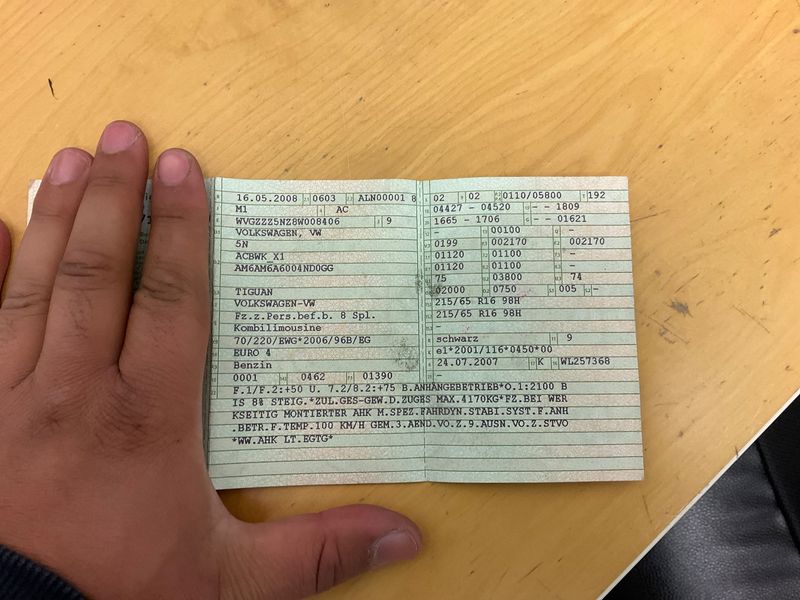 16.05.2008 0603 ALN00001 8
M1 AC
WVGZZZ5NZ8W008406 9
VOLKSWAGEN, VW
5N
ACBWK_X1
AM6AM6A6004ND0GG
TIGUAN
VOLKSWAGEN-VW
Fz.z.Pers.bef.b. 8 Spl.
Kombilimousine
70/220/EWG*2006/96B/EG
EURO 4
Benzin
0001 0462 01390
02 02 0110/05800 192
04427 - 04520 - - 1809
1665 - 1706 - - 01621
- 00100 -
0199 002170 002170
01120 01100 -
01120 01100 -
75 03800 74
02000 0750 005 -
215/65 R16 98H
215/65 R16 98H
-
schwarz 9
e1*2001/116*0450*00
24.07.2007 K WL257368
-
F.1/F.2:+50 U. 7.2/8.2:+75 B.ANHÄNGEBETRIEB*O.1:2100 B
IS 8% STEIG.*ZUL.GES-GEW.D.ZUGES MAX.4170KG*FZ.BEI WER
KSEITIG MONTIERTER AHK M.SPEZ.FAHRDYN.STABI.SYST.F.ANH
.BETR.F.TEMP.100 KM/H GEM.3.AEND.VO.Z.9.AUSN.VO.Z.STVO
*WW.AHK LT.EGTG*